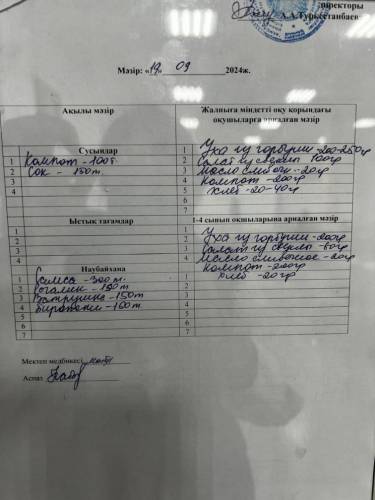 директоры
А.А.Турметанбаев
Мәзір: «19» 09 2024ж.
Ақылы мәзір
Жалпыға міндетті оқу қорындағы оқушыларға арналған мәзір
Сусындар
1 Компот - 100т.
2 Сок - 150т.
3
4
1 Уха из горбуши - 200-250гр
2 Салат из свеклы 100гр
3 Масло сливочн - 20гр
4 Компот - 200гр
5 Хлеб - 20-40гр
6
7
Ыстық тағамдар
1
2
3
4
1-4 сынып оқушыларына арналған мәзір
1 Уха из горбуши - 200гр
2 Салат из свеклы - 60гр
3 Масло сливочное - 20гр
4 Компот - 200гр
Хлеб - 20гр
Наубайхана
1 Самса - 300т.
2 Рогалик - 150т
3 Ватрушка - 150т
4 Пирожки - 150т
5
6
7
1
2
3
4
5
6
7
Мектеп медбикесі
Аспаз